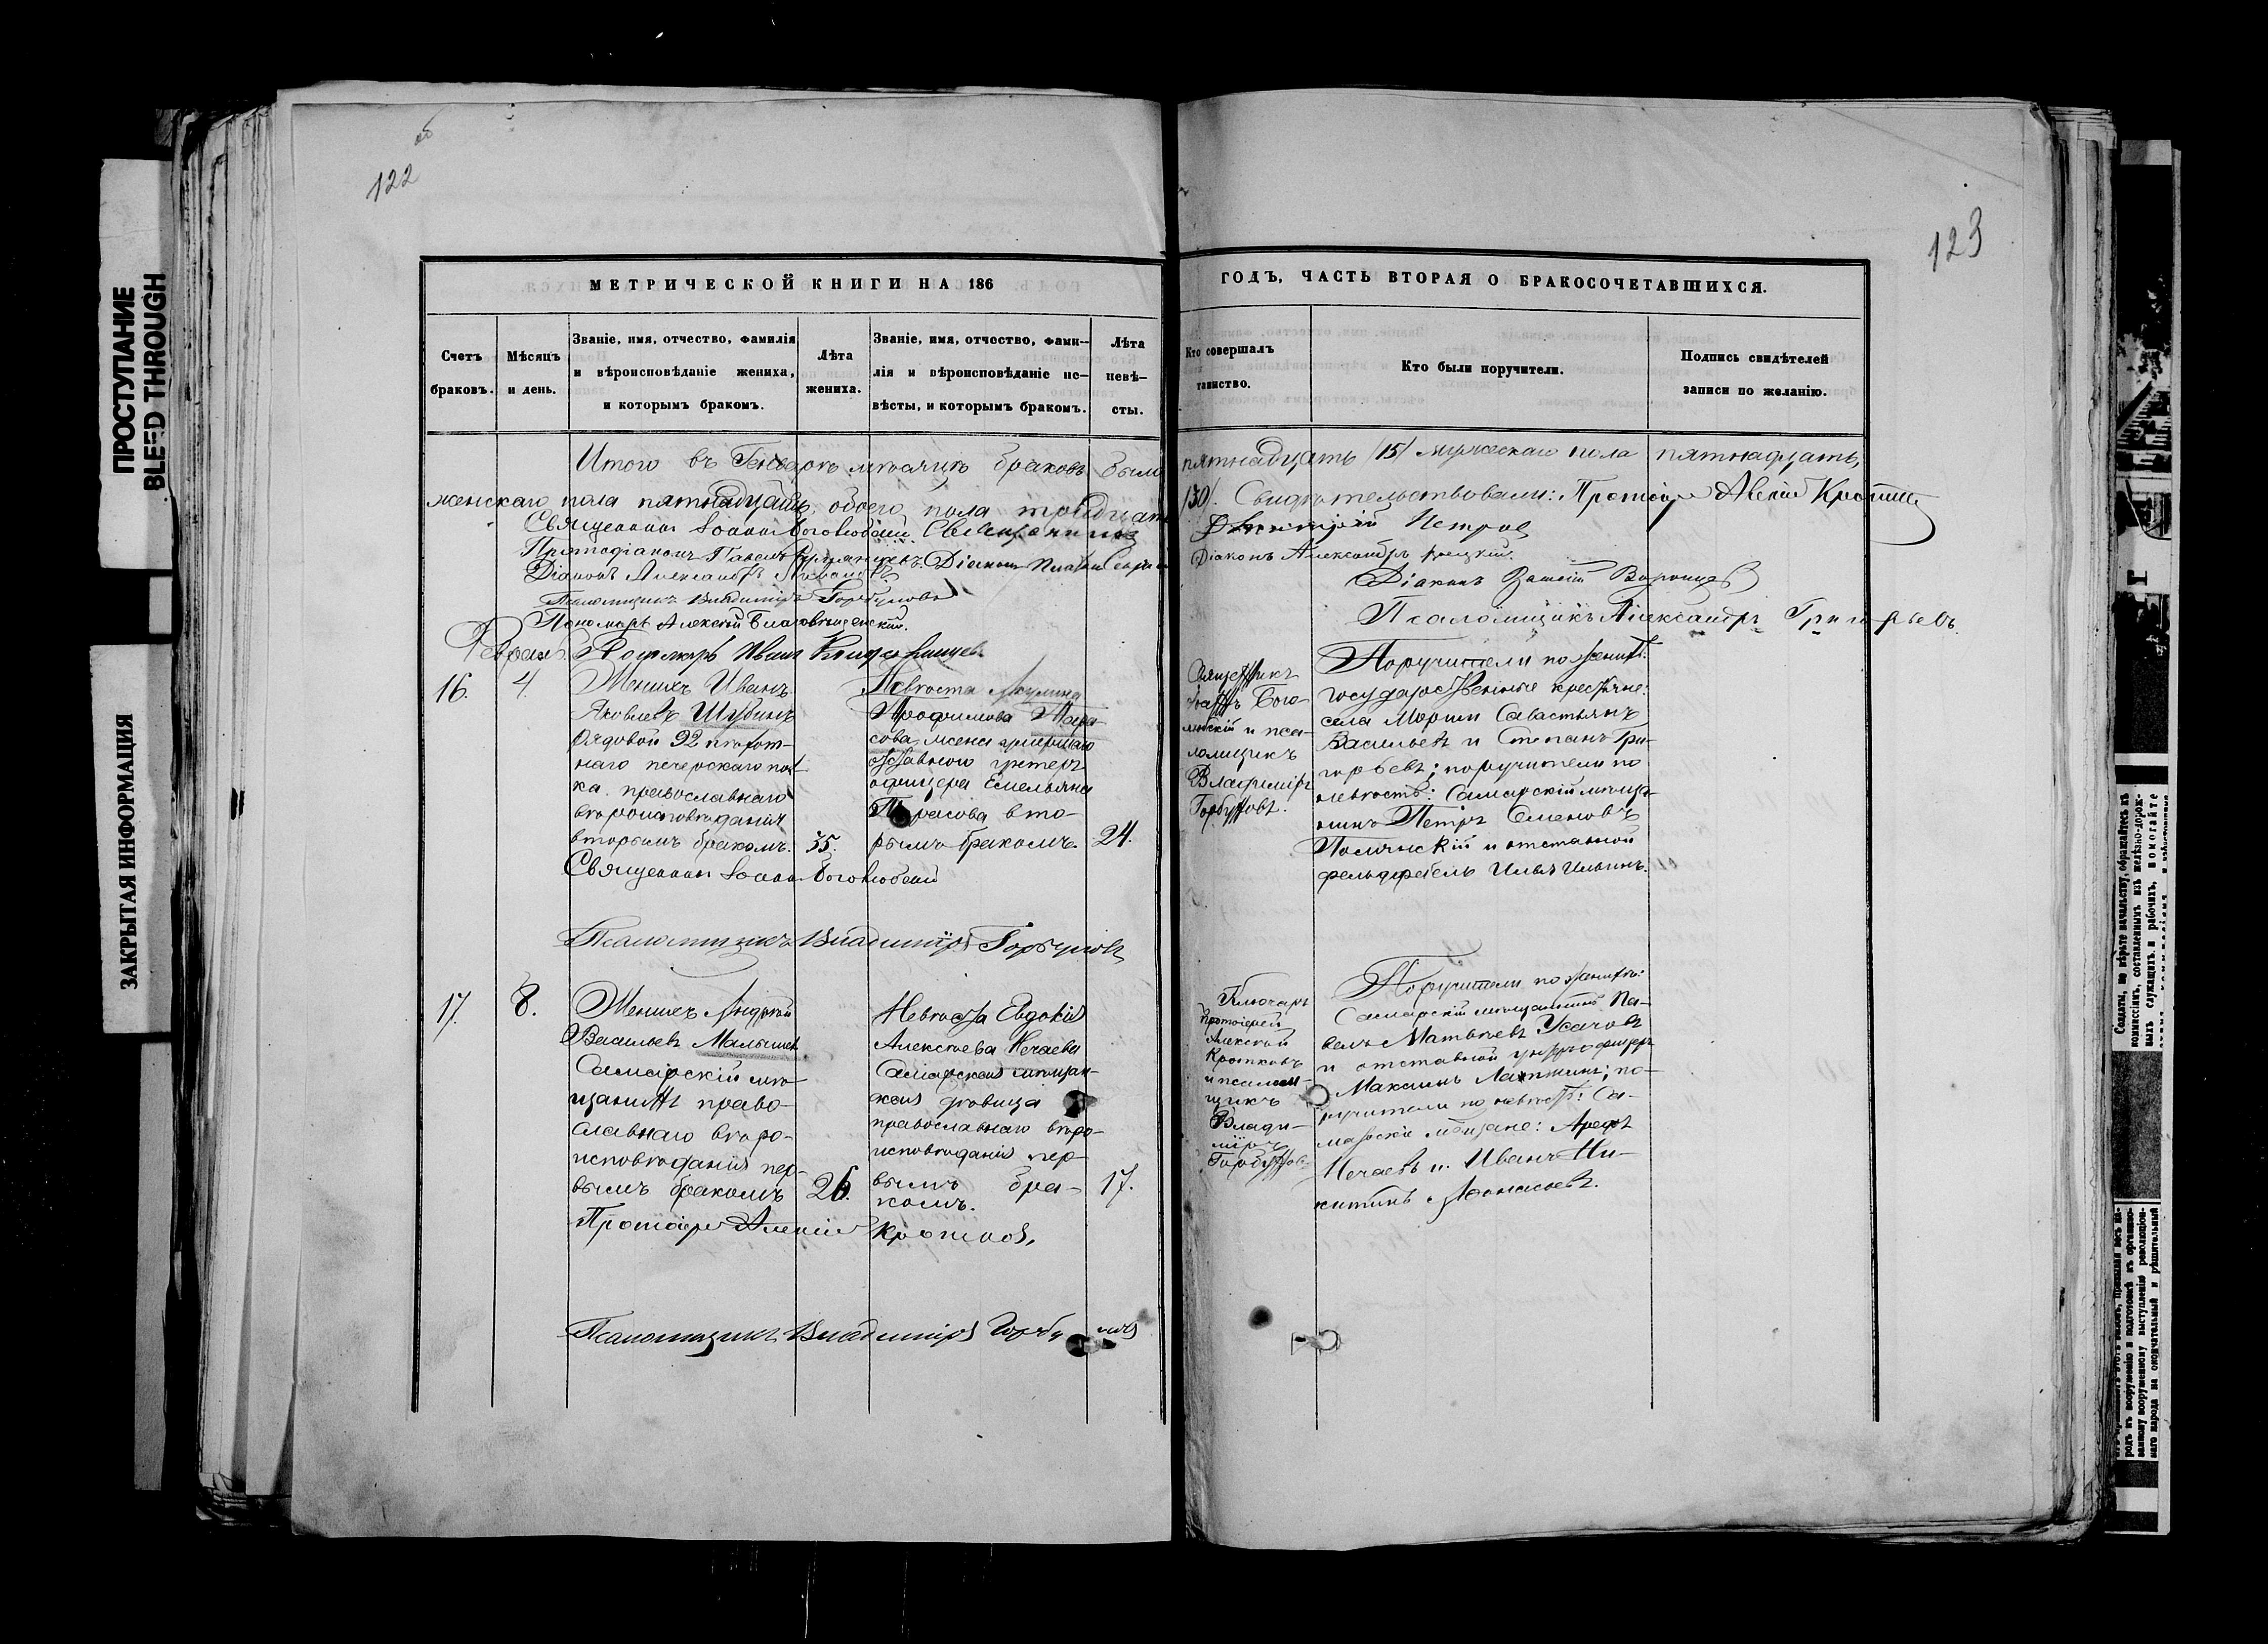 122
об
123
МЕТРИЧЕСКОЙ КНИГИ НА 186
ГОДЪ, ЧАСТЬ ВТОРАЯ О БРАКОСОЧЕТАВШИХСЯ.
Счетъ
браковъ.
Мѣсяцъ
и день.
Званіе, имя, отчество, фамилія
и вѣроисповѣданіе жениха,
и которымъ бракомъ.
Лѣта
жениха.
Званіе, имя, отчество, фами-
лія и вѣроисповѣданіе не-
вѣсты, и которымъ бракомъ.
Лѣта
невѣ-
сты.
Кто совершалъ
таинство.
Кто были поручители.
Подпись свидѣтелей
записи по желанію.
Итого въ Генварѣ мѣсяцѣ браковъ было пятнадцать /15/ мужескаго пола пятнадцать,
женскаго пола пятнадцать, обоего пола тридцать /30/. Свидѣтельствовали: Протоіер
Священникъ Іоаннъ Боголюбскій. Священникъ Димитрій Петров
Протодіаконъ Павелъ Діаконъ
Діаконъ Александръ
Діаконъ Александръ
Діаконъ Василій Воронцов
Псаломщикъ Владиміръ Горбуновъ
Псаломщикъ Александръ Григорьевъ.
Пономарь Алексѣй Благовѣщенскій.
Февраль
Иванъ
16.
4.
Женихъ Иванъ
Яковлевъ Шубинъ
рядовой 92 пѣхот-
наго печерскаго пол-
ка. православнаго
вѣроисповѣданія
вторымъ бракомъ.
35.
Невѣста Акулина
Трофимова Тара-
сова, жена умершаго
отставного унтеръ
офицера Емельяна
Тарасова вто-
рымъ бракомъ.
24.
Священникъ
Іоаннъ Бого-
любскій и пса-
ломщикъ
Владиміръ
Горбуновъ.
Поручители по женихѣ:
государственные крестьяне:
села Моршин Савастьянъ
Васильевъ и Степанъ Гри-
горьевъ; поручители по
невѣстѣ: Самарскій мѣща-
нинъ Петръ Семеновъ
и отставной
фельдфебель Илья Ильинъ.
Священникъ Іоаннъ Боголюбскій
Псаломщикъ Владиміръ Горбуновъ
17.
8.
Женихъ Андрей
Васильевъ Малышев
Самарскій мѣ-
щанинъ право-
славнаго вѣро-
исповѣданія пер-
вымъ бракомъ
26.
Невѣста Евдокія
Алексѣева Нечаева
Самарская мѣщан-
ская дѣвица
православнаго вѣро-
исповѣданія пер-
вымъ бра-
комъ.
17.
Ключарь
Протоіерей
Алексѣй
Кротковъ
и псалом-
щикъ
Влади-
міръ
Горбуновъ
Поручители по женихѣ:
Самарскій мѣщанинъ Па-
велъ Матвѣевъ Усачовъ
и отставной унтеръ офицеръ
Максимъ Лапшинъ; по-
ручители по невѣстѣ: Са-
марскіе мѣщане: Арефъ
Нечаевъ и Иванъ Ни-
китинъ Афанасьевъ.
Протоіерей Алексій Кротковъ,
Псаломщикъ Владиміръ Горбуновъ
ПРОСТУПАНИЕ
BLEED THROUGH
ЗАКРЫТАЯ ИНФОРМАЦИЯ